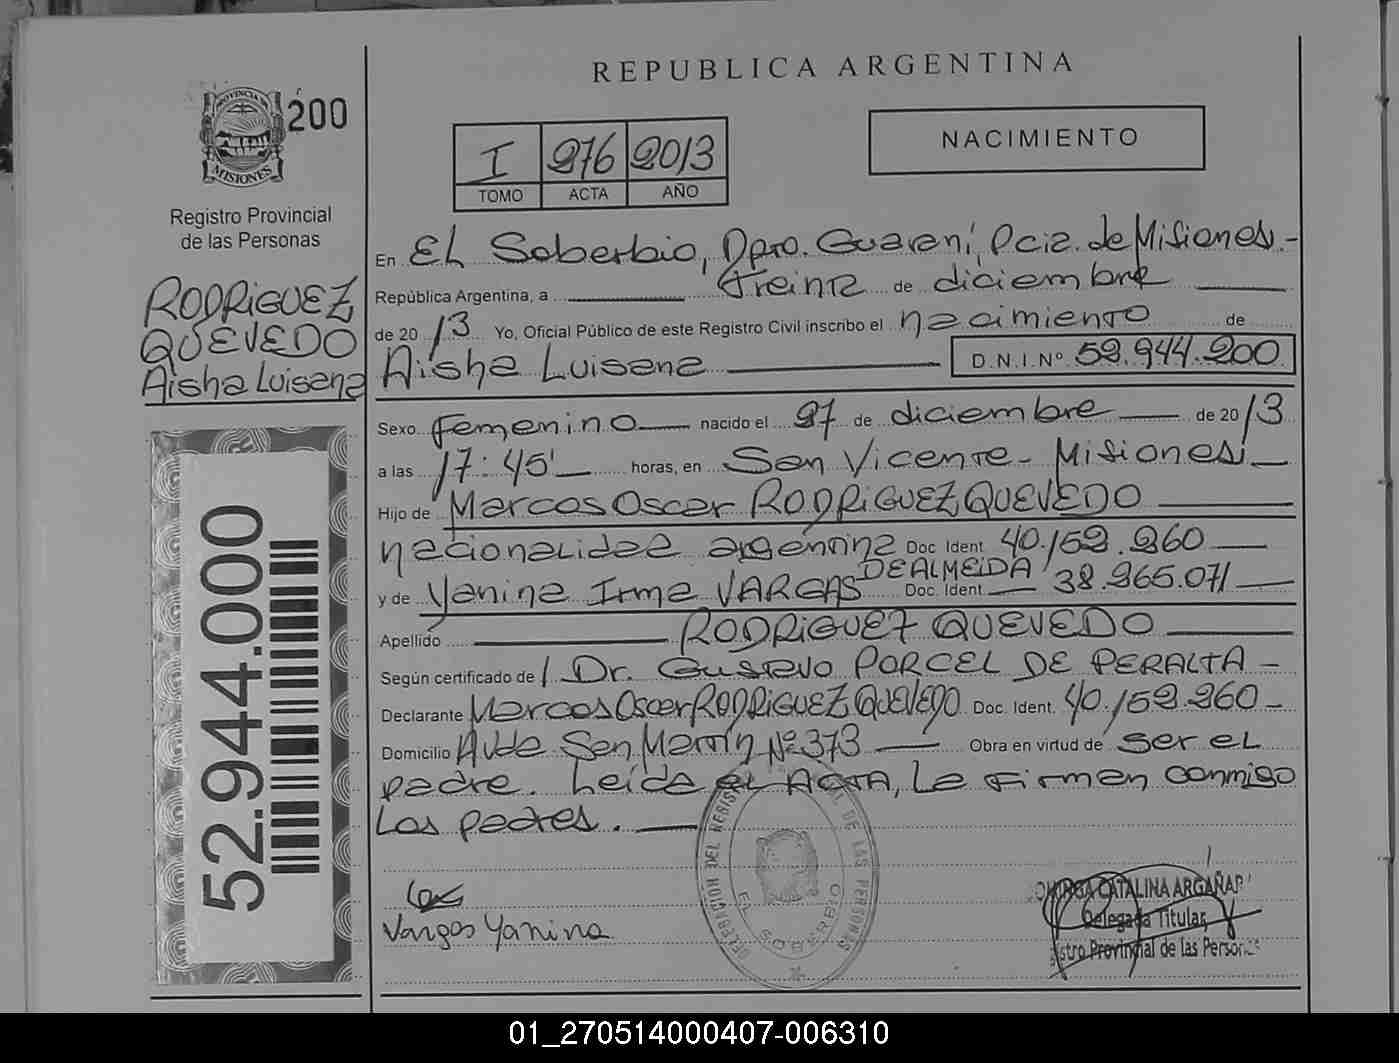 REPUBLICA ARGENTINA
PROVINCIA DE
MISIONES
200
Registro Provincial
de las Personas
RODRIGUEZ
QUEVEDO
Aisha Luisana
52.944.000
I 276 2013
TOMO ACTA AÑO
NACIMIENTO
En El Soberbio, Dpto. Guaraní, Pcia. de Misiones.-
República Argentina, a treinta de diciembre
de 2013 Yo, Oficial Público de este Registro Civil inscribo el nacimiento de
Aisha Luisana D.N.I.Nº 52.944.200
Sexo Femenino nacido el 27 de diciembre de 2013
a las 17:45' horas, en San Vicente - Misiones
Hijo de Marcos Oscar RODRIGUEZ QUEVEDO
nacionalidad argentina Doc Ident 40.152.260
y de Yanina Irma VARGAS DE ALMEIDA Doc. Ident 38.265.071
Apellido RODRIGUEZ QUEVEDO
Según certificado de Dr. Gustavo PORCEL DE PERALTA -
Declarante Marcos Oscar RODRIGUEZ QUEVEDO Doc. Ident. 40.152.260 -
Domicilio Avda San Martín Nº 373 Obra en virtud de ser el
padre. Leída el ACTA, la firman conmigo
los padres.
Vargas Yanina
DELEGACION DEL REGISTRO DE LAS PERSONAS
EL SOBERBIO
CATALINA ARGAÑAR
Delegada Titular
stro Provincial de las Person
01_270514000407-006310